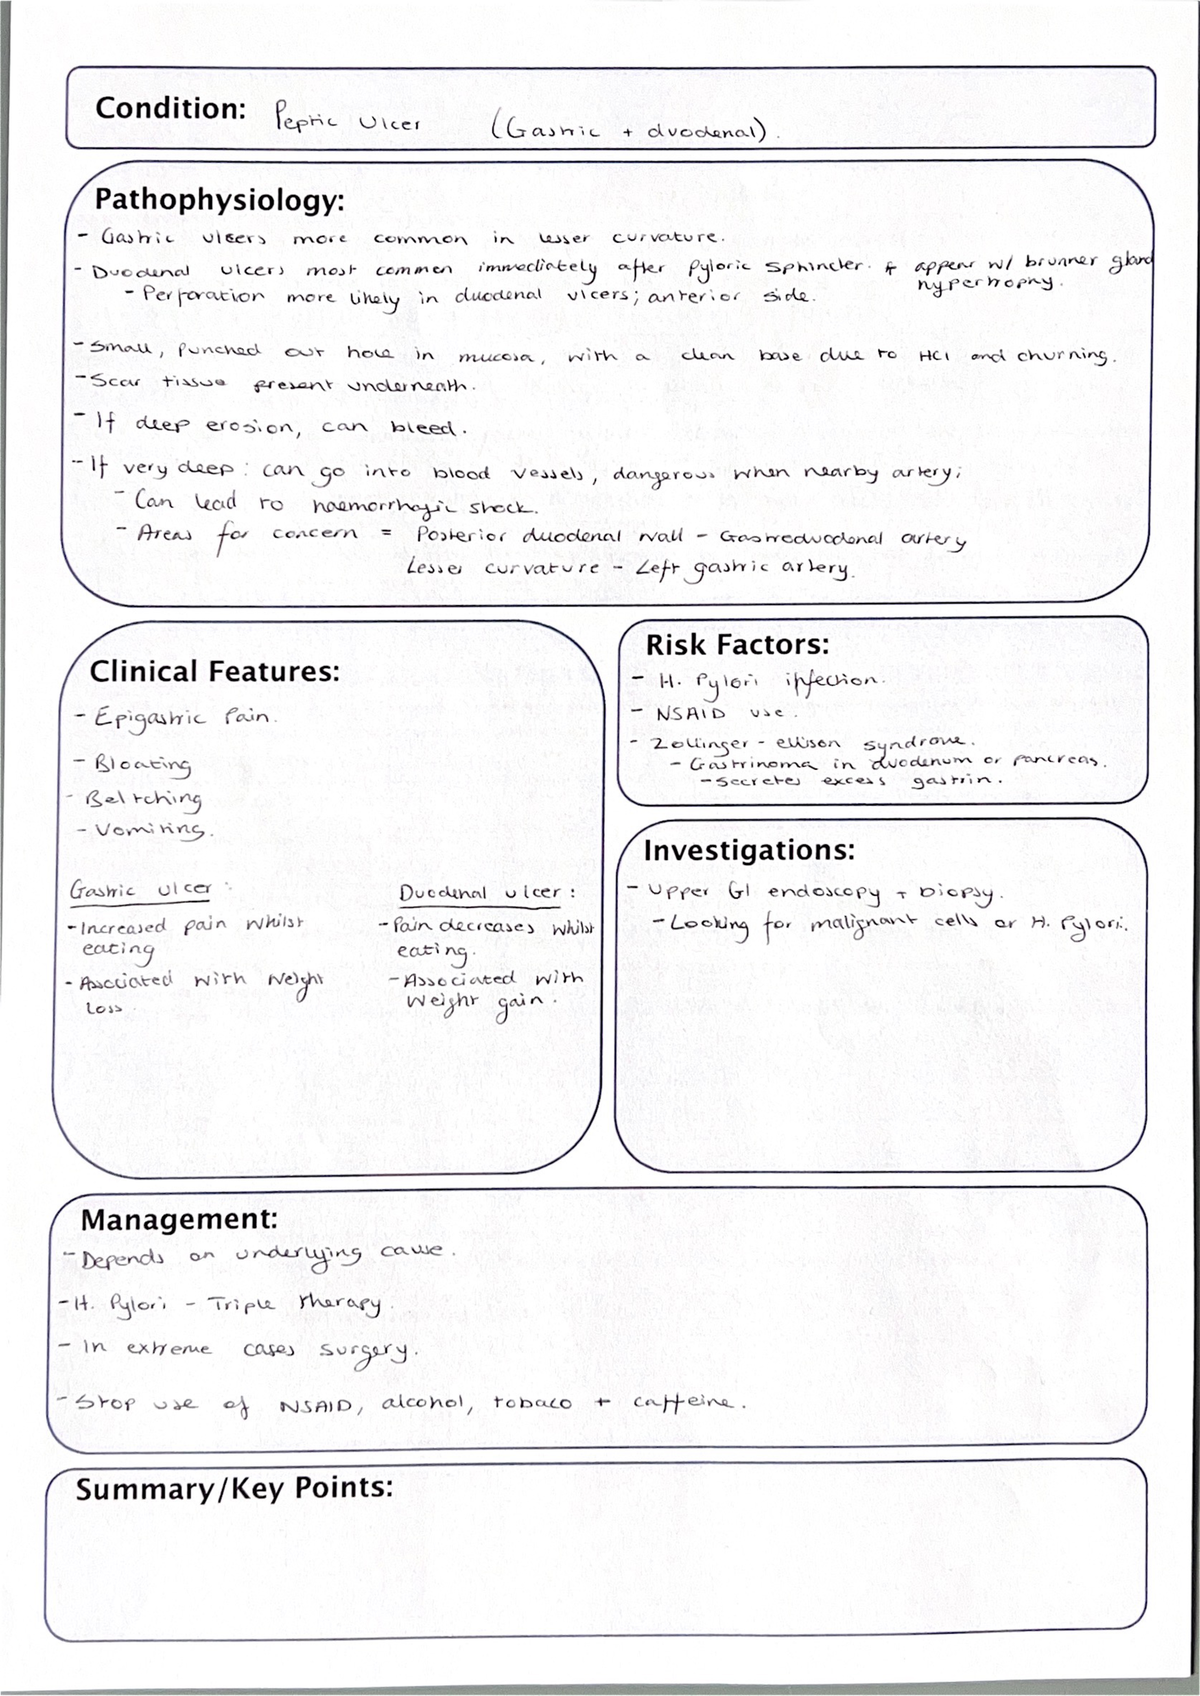 Condition: Peptic Ulcer (Gastric + duodenal).
Pathophysiology:
- Gastric ulcers more common in lesser curvature.
- Duodenal ulcers most common immediately after pyloric sphincter. & appear w/ brunner gland
hypertrophy.
- Perforation more likely in duodenal ulcers; anterior side.
- Small, punched out hole in mucosa, with a clean base due to HCl and churning.
- Scar tissue present underneath.
- If deep erosion, can bleed.
- If very deep: can go into blood vessels, dangerous when nearby artery;
- Can lead to haemorrhagic shock.
- Areas for concern = Posterior duodenal wall - Gastroduodenal artery
Lesser curvature - Left gastric artery.
Clinical Features:
- Epigastric Pain.
- Bloating
- Beltching
- Vomiting.
Gastric ulcer:
- Increased pain whilst
eating
- Associated with weight
loss.
Duodenal ulcer:
- Pain decreases whilst
eating.
- Associated with
weight gain.
Risk Factors:
- H. Pylori infection.
- NSAID use.
- Zollinger-ellison syndrome.
- Gastrinoma in duodenum or pancreas.
- Secretes excess gastrin.
Investigations:
- Upper GI endoscopy + biopsy.
- Looking for malignant cells or H. Pylori.
Management:
- Depends on underlying cause.
- H. Pylori - Triple therapy.
- In extreme cases surgery.
- Stop use of NSAID, alcohol, tobaco + caffeine.
Summary/Key Points: